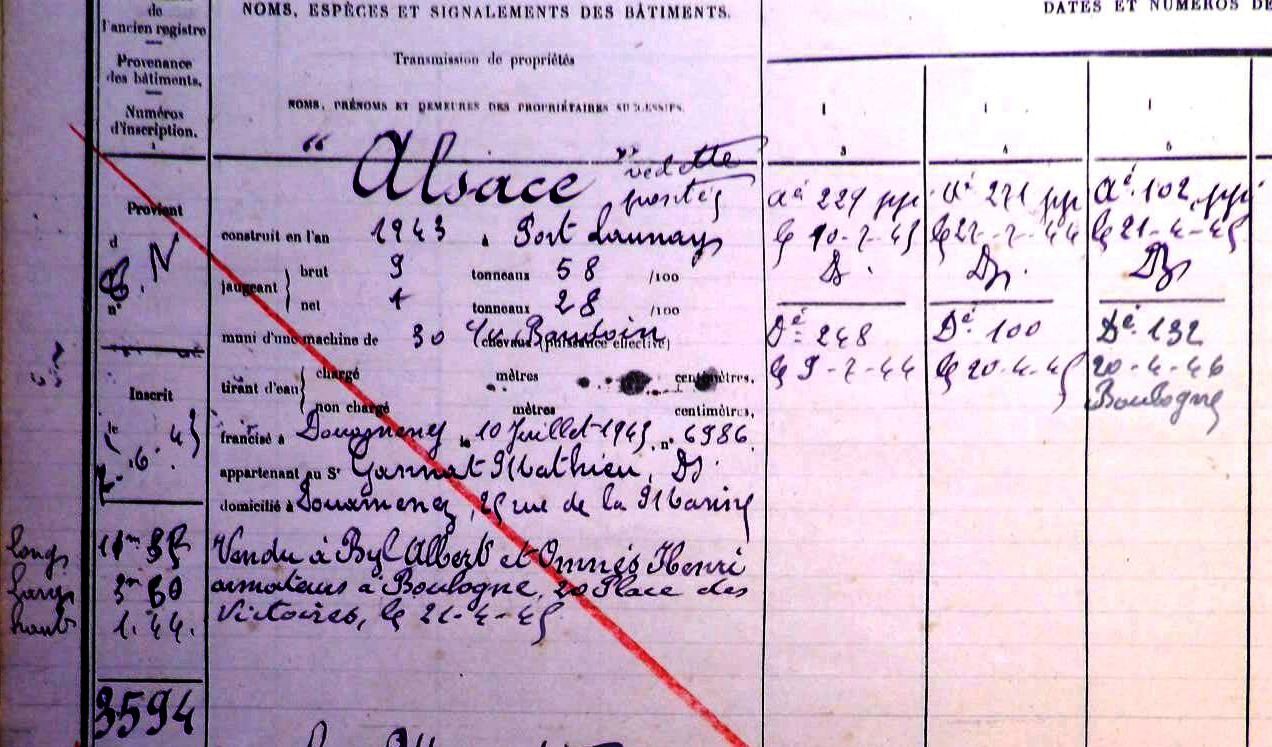 de
l'ancien registre
Provenance
des bâtiments.
Numéros
d'inscription.
1
NOMS, ESPÈCES ET SIGNALEMENTS DES BÂTIMENTS.
Transmission de propriétés
NOMS, PRÉNOMS ET DEMEURES DES PROPRIÉTAIRES SUCCESSIFS.
DATES ET NUMÉROS DE
3
4
5
Provient
d
B. N
n°
Inscrit
le
Long
11m 35
Larg
3m 60
haut
1.44.
3594
" Alsace " vedette
pontée
construit en l'an 1943 à Port Launay
jaugeant brut 9 tonneaux 58 /100
net 4 tonneaux 28 /100
muni d'une machine de 30 Baudoin
chevaux (puissance effective)
tirant d'eau chargé mètres centimètres.
non chargé mètres centimètres.
francisé à Douarnenez le 10 Juillet 1943, n° 6986
appartenant au Sr Gannat Mathieu, Dz
domicilié à Douarnenez, 25 rue de la Marine
Vendu à Byl Albert et Omnès Henri
armateurs à Boulogne, 20 Place des
Victoires, le 21-4-45
Aé 229 pp
le 10-7-43
Dz.
Dé 248
le 9-2-44
Aé 271 pp
le 22-2-44
Dz.
Dé 100
le 20-4-45
Aé 102, pp
le 21-4-45
Dz
Dé 132
20-4-46
Boulogne